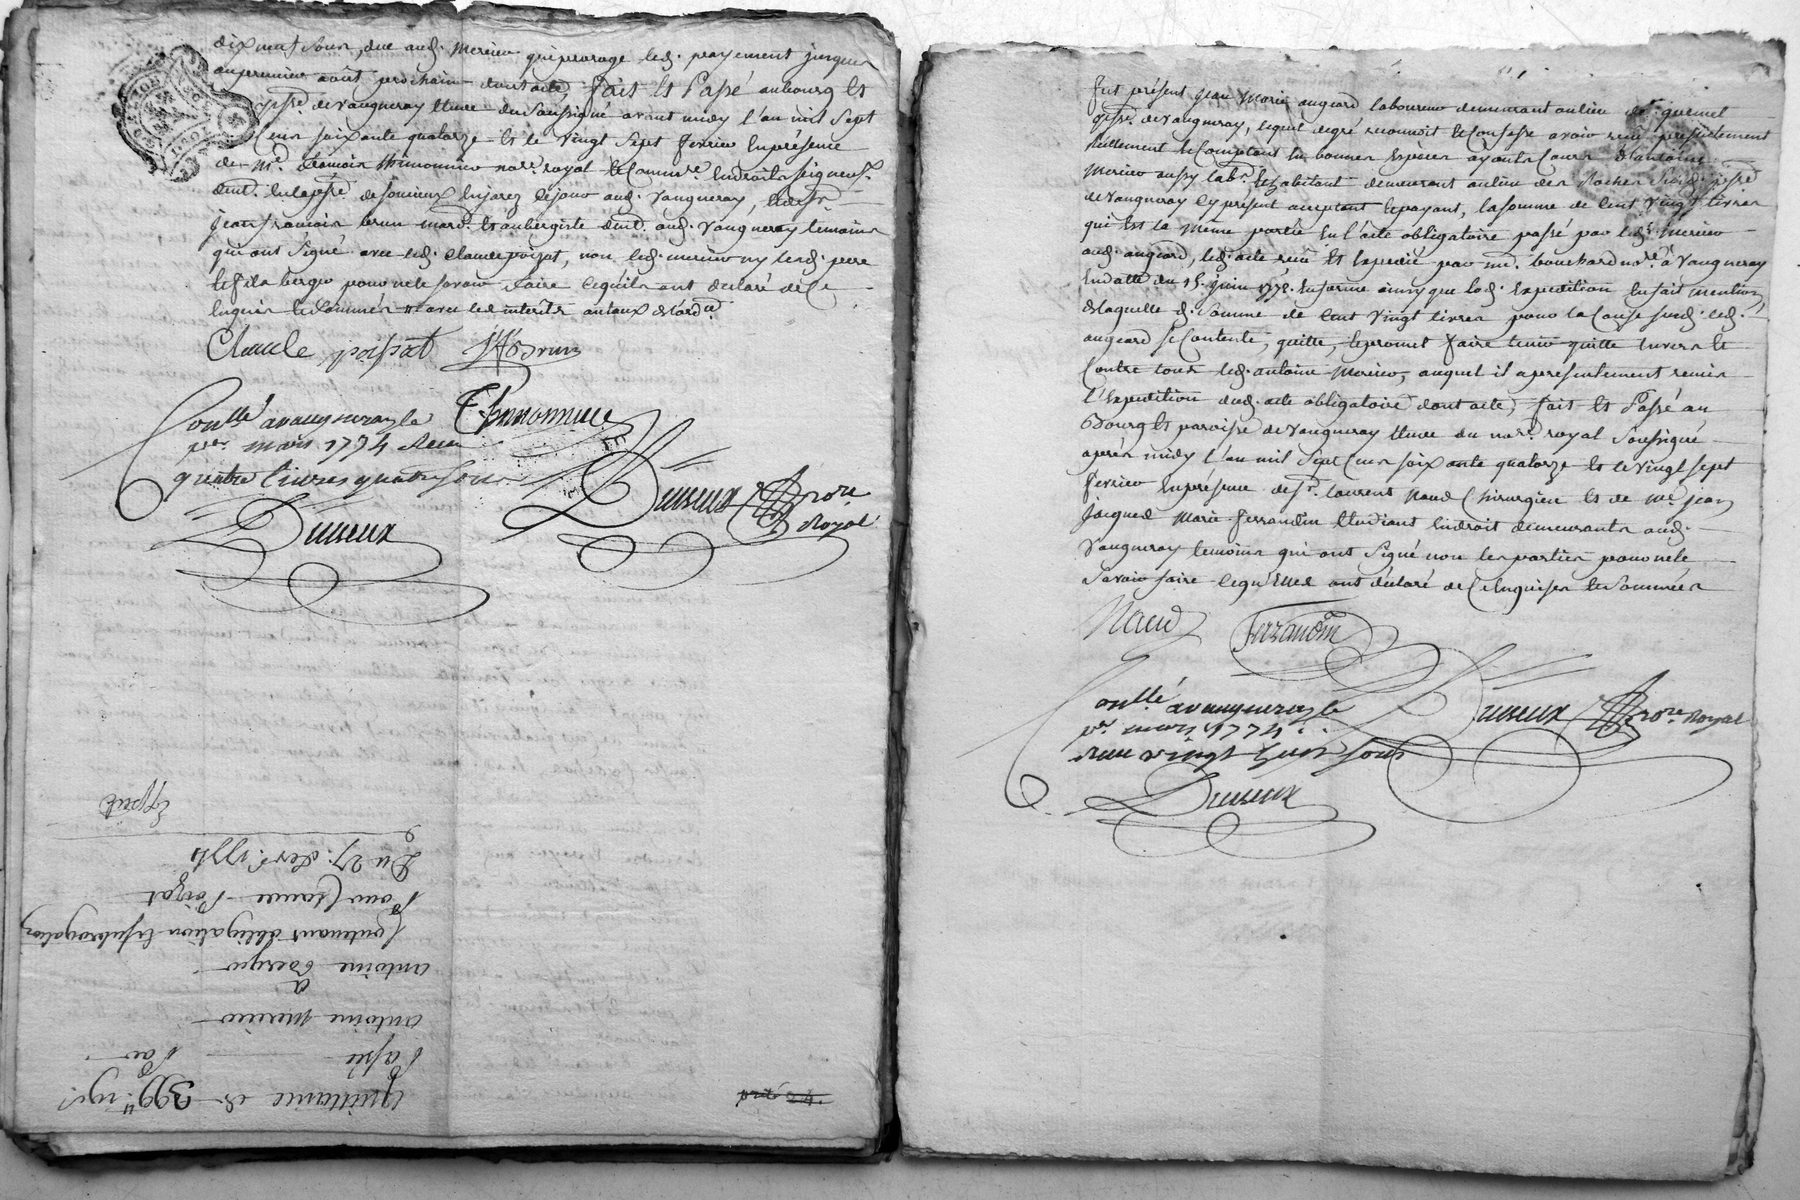 dix neuf sous, due aud. Mercier qui proroge led. payement jusques
au premier août prochain dont acte, fait et Passé au bourg et
pssē. de Vaugneray Etude du Soussigné avant midy l'an mil Sept
Cens soixante quatorze et le vingt Sept fevrier En présence
de Me. notre. royal et Commre. En droits Seigneux.
demt. En la pssē. de Soucieux En Jarez de jour aud. Vaugneray, et de Sr.
Jean francois brun mard. Et aubergiste demt. aud. Vaugneray temoins
qui ont Signé avec led. Claude poizat, non led. mercier ny lesd. pere
et fils berger pour ne le Savoir faire Ce qu'ils ont declaré de Ce
Enquis et Sommés
Claude poizat JF Brun
Conllé a vaugneray le
per. mars 1774 Recu
quatre livres quatre sous
Dusseux
Dusseux nore
Royal
Expédié
Du 27. fevr. 1774
Pour Claude Poizat
Contenant obligation et subrogation
antoine Berger
a
antoine mercier
Passé Par
Quittance de 399ll. 19s.
fut présent Jean Marie augiard laboureur demeurant au lieu de quemel
pssē. de Vaugneray, lequel degré reconnoit et Confesse avoir reçu presentement
réellement et Comptant En bonnes Espèces ayant Cours d'antoine
Mercier aussy labr. et habitant demeurant au lieu des Roches Susd. pssē
de Vaugneray Cy présent acceptant et payant, la somme de Cent Vingt livres
qui Est la meme portée En l'acte obligatoire passé par led. Mercier
aud. augiard, led. acte reçu et Expedié par me. bouchard nore. à Vaugneray
En datte du 15. Juin 1772. En forme ainsy que lad. Expedition En fait mention,
de laquelle d. Somme de Cent Vingt livres pour la Cause Susd. led.
augiard se Contente, quitte, et promet faire tenir quitte Envers et
Contre tous led. antoine Mercier, auquel il a presentement remis
l'Expedition dud. acte obligatoire dont acte, fait et Passé au
Bourg et paroisse de Vaugneray Etude du nore. royal Soussigné
après midy l'an mil Sept Cens soixante quatorze et le vingt sept
fevrier En présence de Sr. laurent Naud Chirurgien et de Me. Jean
Jacques Marie ferrandin Etudiant En droit demeurants aud.
Vaugneray temoins qui ont Signé non les parties pour ne le
Savoir faire Ce qu'Elles ont déclaré de Ce Enquises et Sommées
Naud Ferrandin
Conllé a vaugneray le
pr. mars 1774.
Recu vingt huit sous
Dusseux
Dusseux nore. Royal